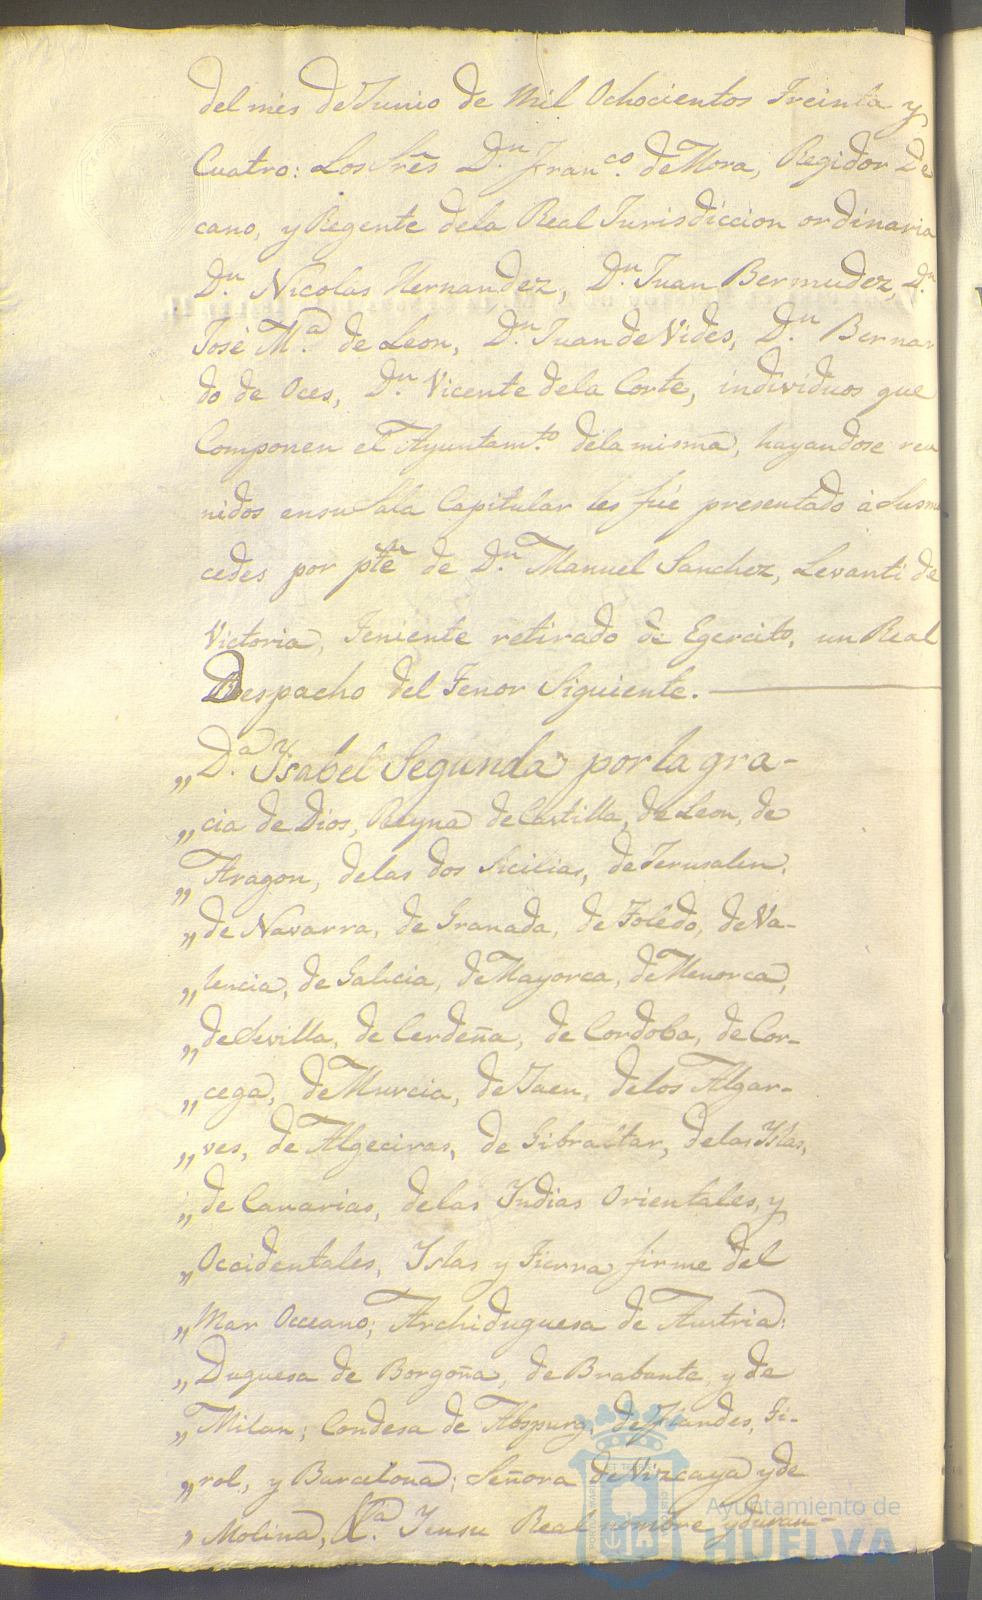 del mes de Junio de Mil Ochocientos Treinta y
Cuatro: Los Sres. Dn. Franco. de Mora, Regidor De
cano, y Regente dela Real Jurisdiccion ordinaria
Dn. Nicolas Hernandez, Dn. Juan Bermudez, Dn.
José Ma. de Leon, Dn. Juan de Vides, Dn. Bernar
do de Oces, Dn. Vicente dela Corte, individuos que
Componen el Ayuntamto. dela misma, hayandose reu
nidos ensu Sala Capitular les fué presentado á Susmr
cedes por pte de Dn. Manuel Sanchez, Levanti de
Victoria, Teniente retirado de Egercito, un Real
Despacho del Tenor Siguiente.
„ Da. Ysabel Segunda por la gra-
„ cia de Dios, Reyna de Castilla, de Leon, de
„ Aragon, delas dos Sicilias, de Jerusalen,
„ de Navarra, de Granada, de Toledo, de Va-
„ lencia, de Galicia, de Mayorca, de Menorca,
„ de Sevilla, de Cerdeña, de Cordoba, de Cor-
„ cega, de Murcia, de Jaen, delos Algar-
„ ves, de Algeciras, de Gibraltar, delas Yslas,
„ de Canarias, delas Yndias Orientales, y
„ Occidentales, Yslas y Tierra firme del
„ Mar Occeano; Archiduguesa de Austria:
„ Duguesa de Borgoña, de Brabante, y de
„ Milan; Condesa de Abspurg, de Flandes, Ti-
„ rol, y Barcelona; Señora de Vizcaya y de
„ Molina, &a. Y ensu Real nombre y duran-
Ayuntamiento de
HUELVA